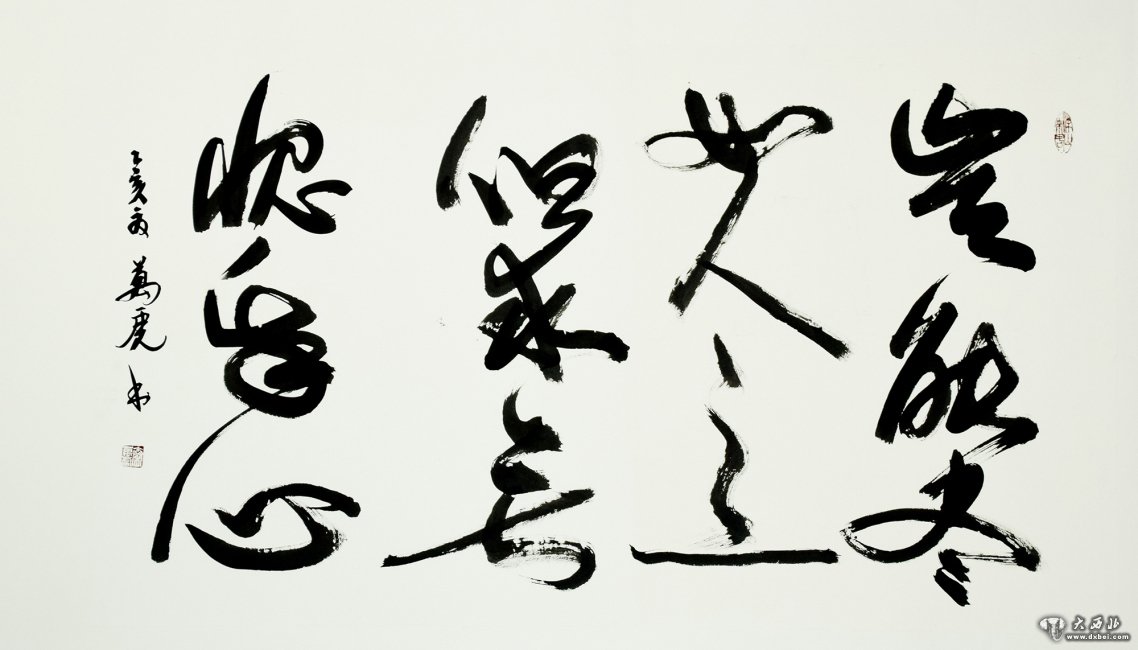 豈能尽
如人意
但求無
愧我心
己亥夏 萬虎 书
大西北
www.dxbei.com